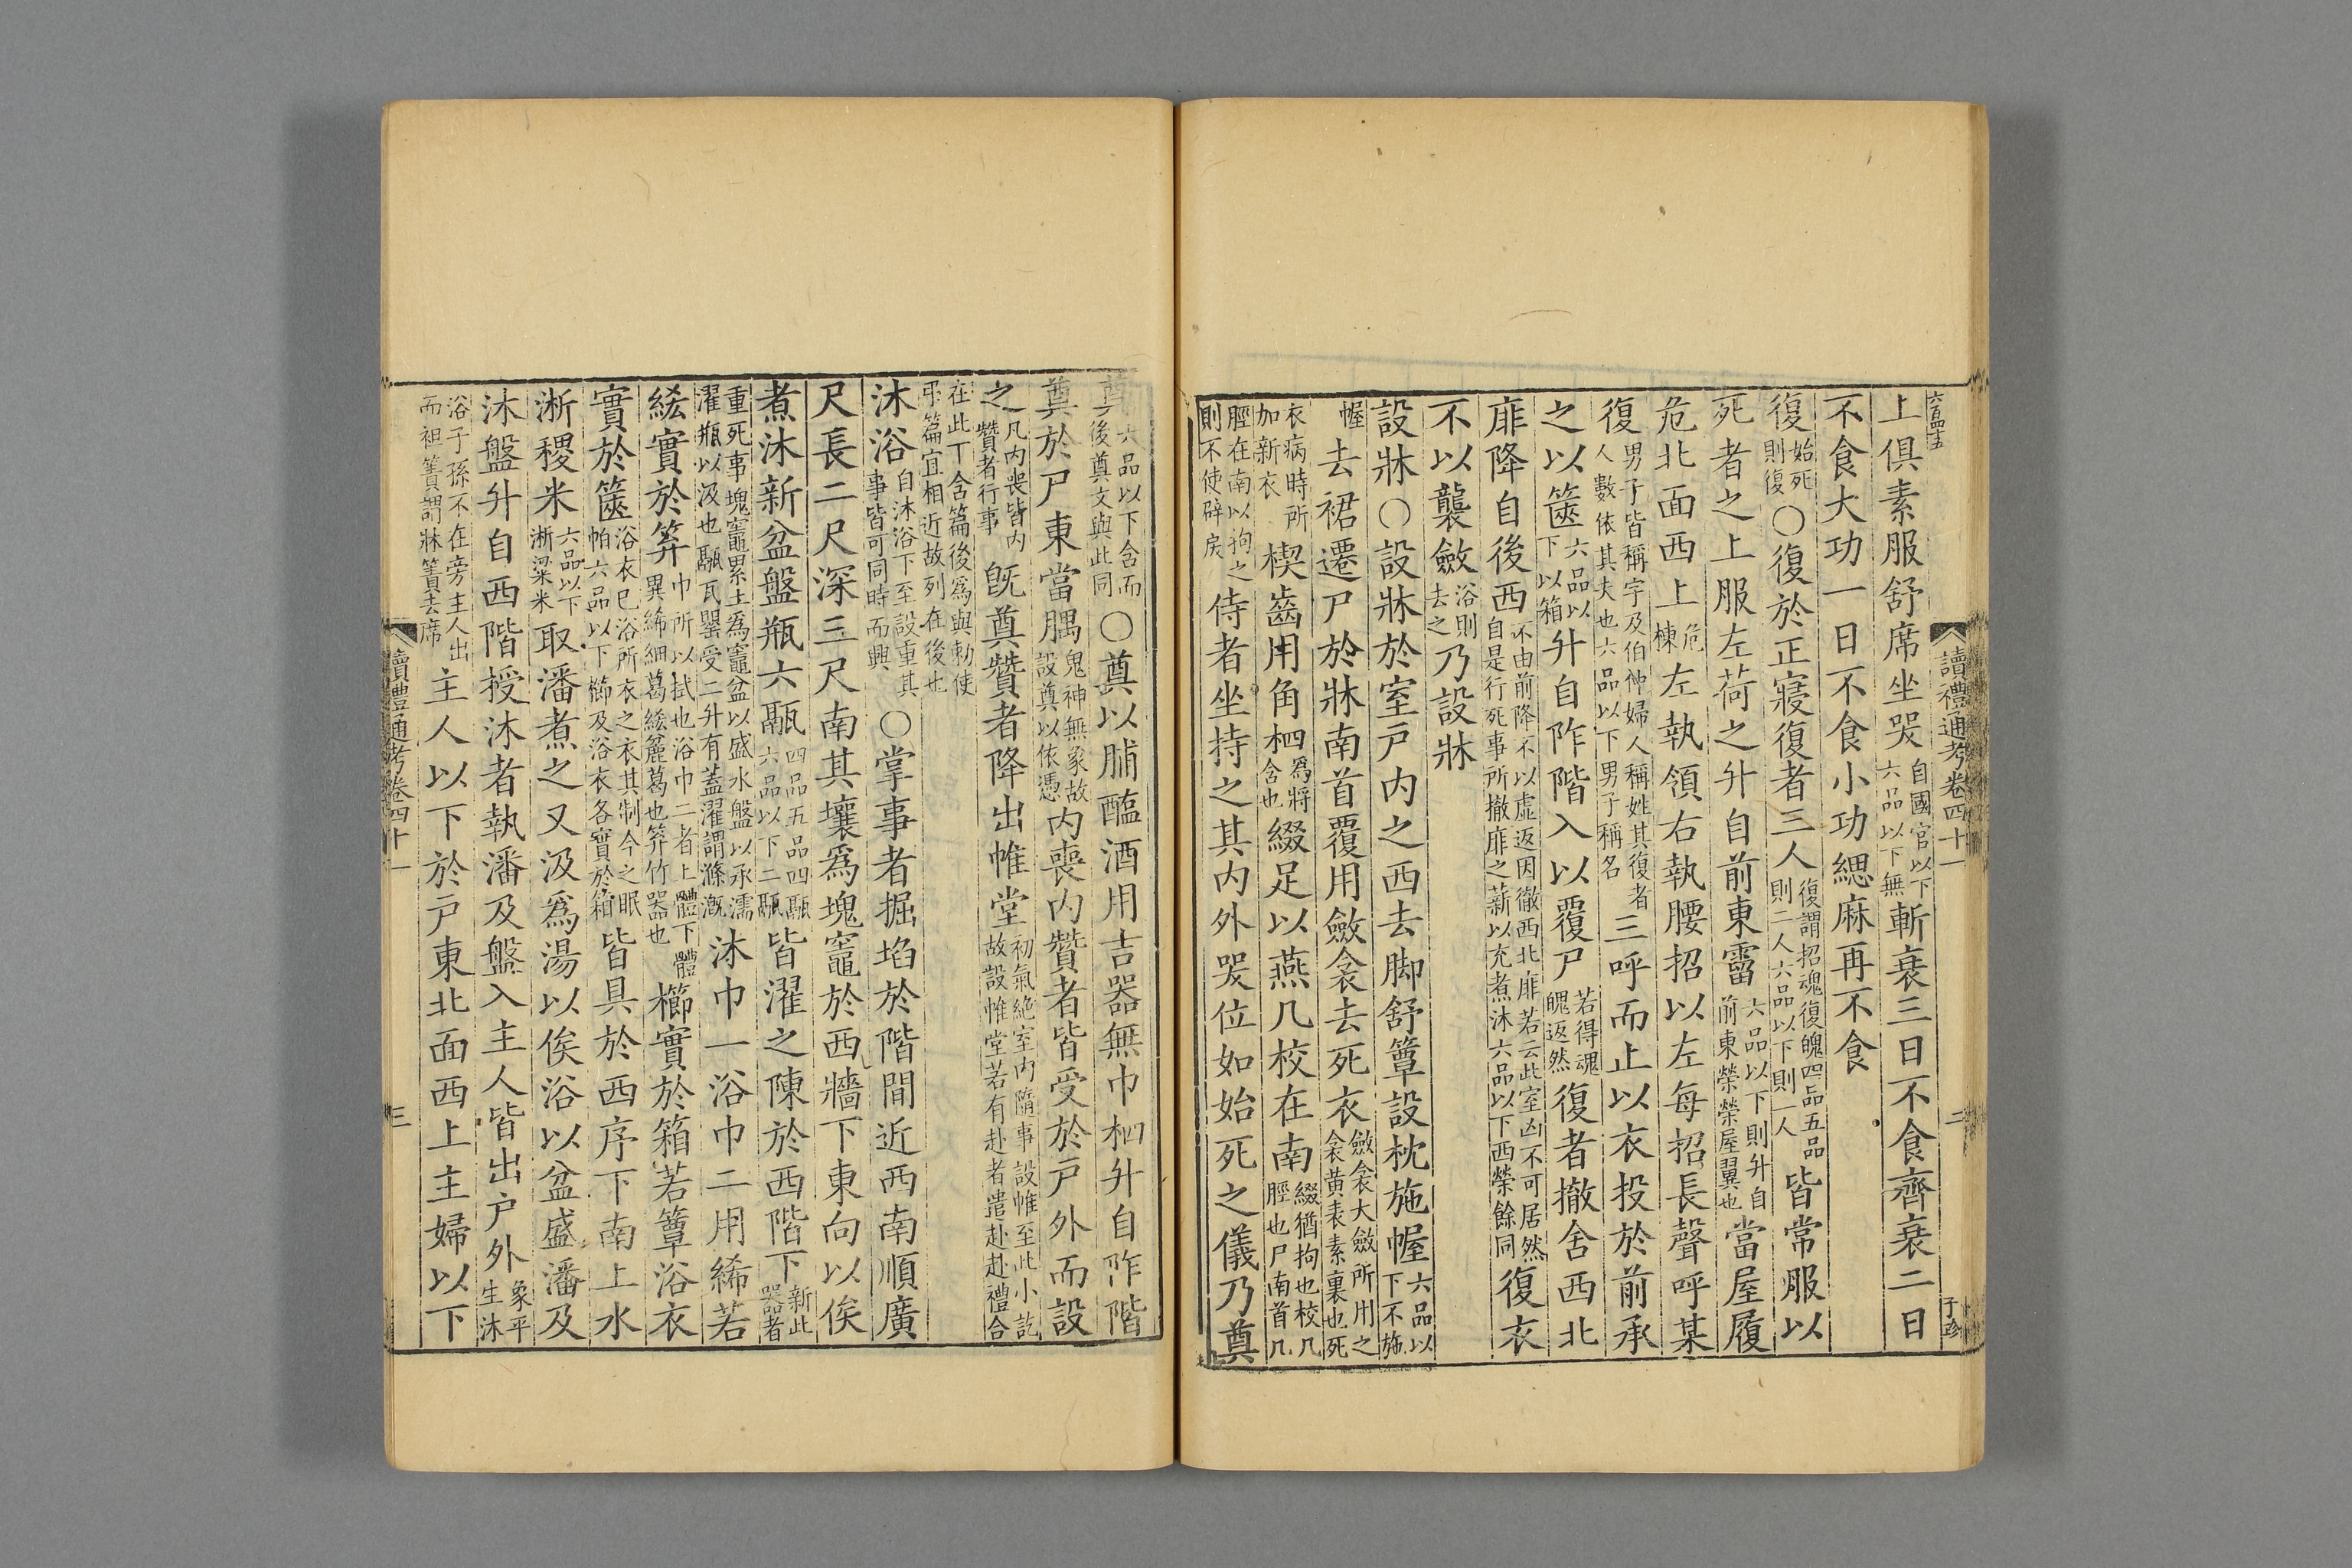 上俱素服舒席坐哭自國官以下六品以下無斬衰三日不食齊衰二日
不食大功一日不食小功緦麻再不食
復始死則復〇復於正寢復者三人復謂招魂復魄四品五品則二人六品以下則一人皆常服以
死者之上服左荷之升自前東霤六品以下則升自前東榮榮屋翼也當屋履
危北面西上危棟左執領右執腰招以左每招長聲呼某
復男子皆稱字及伯仲婦人稱姓其復者人數依其夫也六品以下男子稱名三呼而止以衣投於前承
之以篋六品以下以箱升自阼階入以覆尸若得魂魄返然復者撤舍西北
厞降自後西不由前降不以虛返因徹西北厞若云此室凶不可居然自是行死事所撤厞之薪以充煮沐六品以下西榮餘同復衣
不以襲斂浴則去之乃設牀
設牀〇設牀於室戸内之西去脚舒簟設枕施幄六品以下不施
幄去裙遷尸於牀南首覆用斂衾去死衣斂衾大斂所用之衾黃表素裏也死
衣病時所加新衣楔齒用角柶爲將含也綴足以燕几校在南綴猶拘也校几脛也尸南首几
脛在南以拘之則不使辟戾侍者坐持之其内外哭位如始死之儀乃奠
讀禮通考卷四十一
二
六品以下含而奠後奠文與此同〇奠以脯醢酒用吉器無巾柶升自阼階
奠於尸東當腢鬼神無象故設奠以依憑内喪内贊者皆受於戸外而設
之凡内喪皆内贊者行事旣奠贊者降出帷堂初氣絶室内隨事設帷至此小訖故設帷堂若有赴者遣赴赴禮合
在此下含篇後爲與勅使弔篇宜相近故列在後也
沐浴自沐浴下至設重其事皆可同時而興〇掌事者掘坎於階間近西南順廣
尺長二尺深三尺南其壤爲塊竈於西牆下東向以俟
煮沐新盆盤瓶六鬲四品五品四鬲六品以下二鬲皆濯之陳於西階下新此器者
重死事塊竈累土為竈盆以盛水盤以承濡濯瓶以汲也鬲瓦甖受二升有蓋濯謂滌溉沐巾一浴巾二用絺若
綌實於笲巾所以拭也浴巾二者上體下體異絺細葛綌麤葛也笲竹器也櫛實於箱若簟浴衣
實於篋浴衣已浴所衣之衣其制今之眠帕六品以下櫛及浴衣各實於箱皆具於西序下南上水
淅稷米六品以下淅粱米取潘煮之又汲爲湯以俟浴以盆盛潘及
沐盤升自西階授沐者執潘及盤入主人皆出户外象平生沐
浴子孫不在旁主人出而袒簀謂牀簀去席主人以下於戸東北面西上主婦以下
讀禮通考卷四十一
三